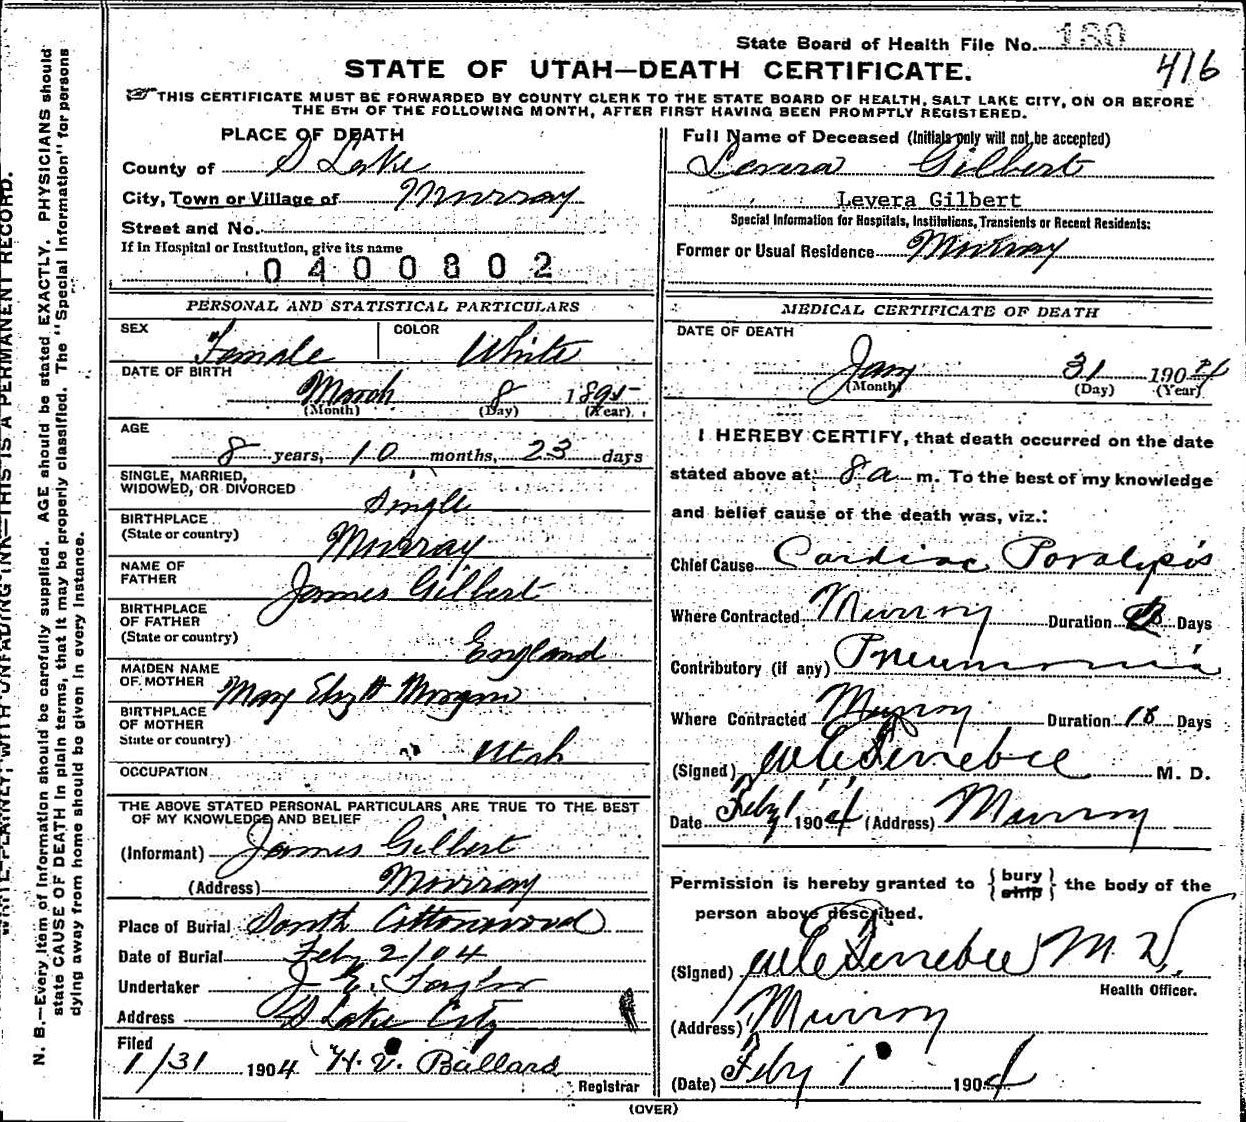 State Board of Health File No. 180
416
STATE OF UTAH—DEATH CERTIFICATE.
THIS CERTIFICATE MUST BE FORWARDED BY COUNTY CLERK TO THE STATE BOARD OF HEALTH, SALT LAKE CITY, ON OR BEFORE
THE 5TH OF THE FOLLOWING MONTH, AFTER FIRST HAVING BEEN PROMPTLY REGISTERED.
PLACE OF DEATH
County of S Lake
City, Town or Village of Murray
Street and No.
If in Hospital or Institution, give its name
0400802
PERSONAL AND STATISTICAL PARTICULARS
SEX Female COLOR White
DATE OF BIRTH
March 8 1895
(Month) (Day) (Year)
AGE
8 years, 10 months, 23 days
SINGLE, MARRIED,
WIDOWED, OR DIVORCED
Single
BIRTHPLACE
(State or country)
Murray
NAME OF
FATHER
James Gilbert
BIRTHPLACE
OF FATHER
(State or country)
England
MAIDEN NAME
OF MOTHER
Mary Elizth Morgan
BIRTHPLACE
OF MOTHER
State or country)
Utah
OCCUPATION
THE ABOVE STATED PERSONAL PARTICULARS ARE TRUE TO THE BEST
OF MY KNOWLEDGE AND BELIEF
(Informant) James Gilbert
(Address) Murray
Place of Burial South Cottonwood
Date of Burial Feby 2/04
Undertaker J E. Taylor
Address S Lake City
Filed
1/31 1904 H. V. Ballard
Registrar
Full Name of Deceased (Initials only will not be accepted)
Levera Gilbert
Levera Gilbert
Special Information for Hospitals, Institutions, Transients or Recent Residents:
Former or Usual Residence Murray
MEDICAL CERTIFICATE OF DEATH
DATE OF DEATH
Jany 31 1904
(Month) (Day) (Year)
I HEREBY CERTIFY, that death occurred on the date
stated above at 8 a m. To the best of my knowledge
and belief cause of the death was, viz.:
Chief Cause Cardiac Paralysis
Where Contracted Murray Duration Days
Contributory (if any) Pneumonia
Where Contracted Murray Duration 18 Days
(Signed) M. D.
Date Feby 1 1904 (Address) Murray
Permission is hereby granted to { bury ship } the body of the
person above described.
(Signed) M D.
Health Officer.
(Address) Murray
(Date) Feby 1 1904
(OVER)
WRITE PLAINLY, WITH UNFADING INK—THIS IS A PERMANENT RECORD.
N. B.—Every item of information should be carefully supplied. AGE should be stated EXACTLY. PHYSICIANS should
state CAUSE OF DEATH in plain terms, that it may be properly classified. The "Special Information" for persons
dying away from home should be given in every instance.